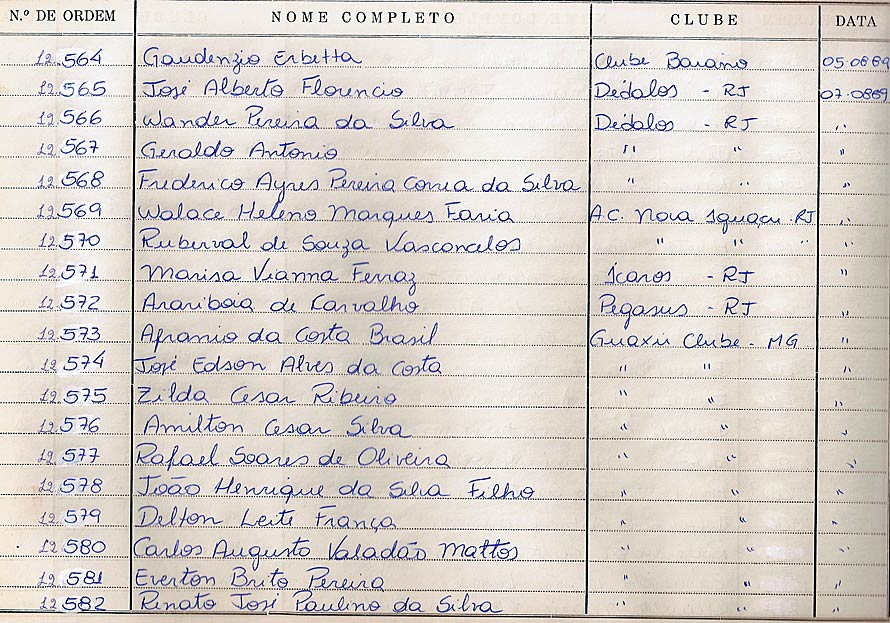 N.º DE ORDEM NOME COMPLETO CLUBE DATA
12.564 Gaudenzio Erbetta Clube Baiano 05.0889
12.565 José Alberto Florencio Dédalos - RJ 07.0889
12.566 Wander Pereira da Silva Dédalos - RJ "
12.567 Geraldo Antonio " " "
12.568 Frederico Ayres Pereira Correa da Silva " " "
12.569 Walace Heleno Marques Faria A.C. Nova Iguaçu. RJ "
12.570 Ruberval de Souza Vasconcelos " " " "
12.571 Marisa Vianna Ferraz Ícaros - RJ "
12.572 Arariboia de Carvalho Pegasus - RJ "
12.573 Afranio da Costa Brasil Guaxu Clube - MG "
12.574 José Edson Alves da Costa " " "
12.575 Zilda Cesar Ribeiro " " "
12.576 Amilton Cesar Silva " " "
12.577 Rafael Soares de Oliveira " " "
12.578 João Henrique da Silva Filho " " "
12.579 Delton Leite França " " "
12.580 Carlos Augusto Valadão Mattos " " "
12.581 Everton Brito Pereira " " "
12.582 Renato José Paulino da Silva " " "